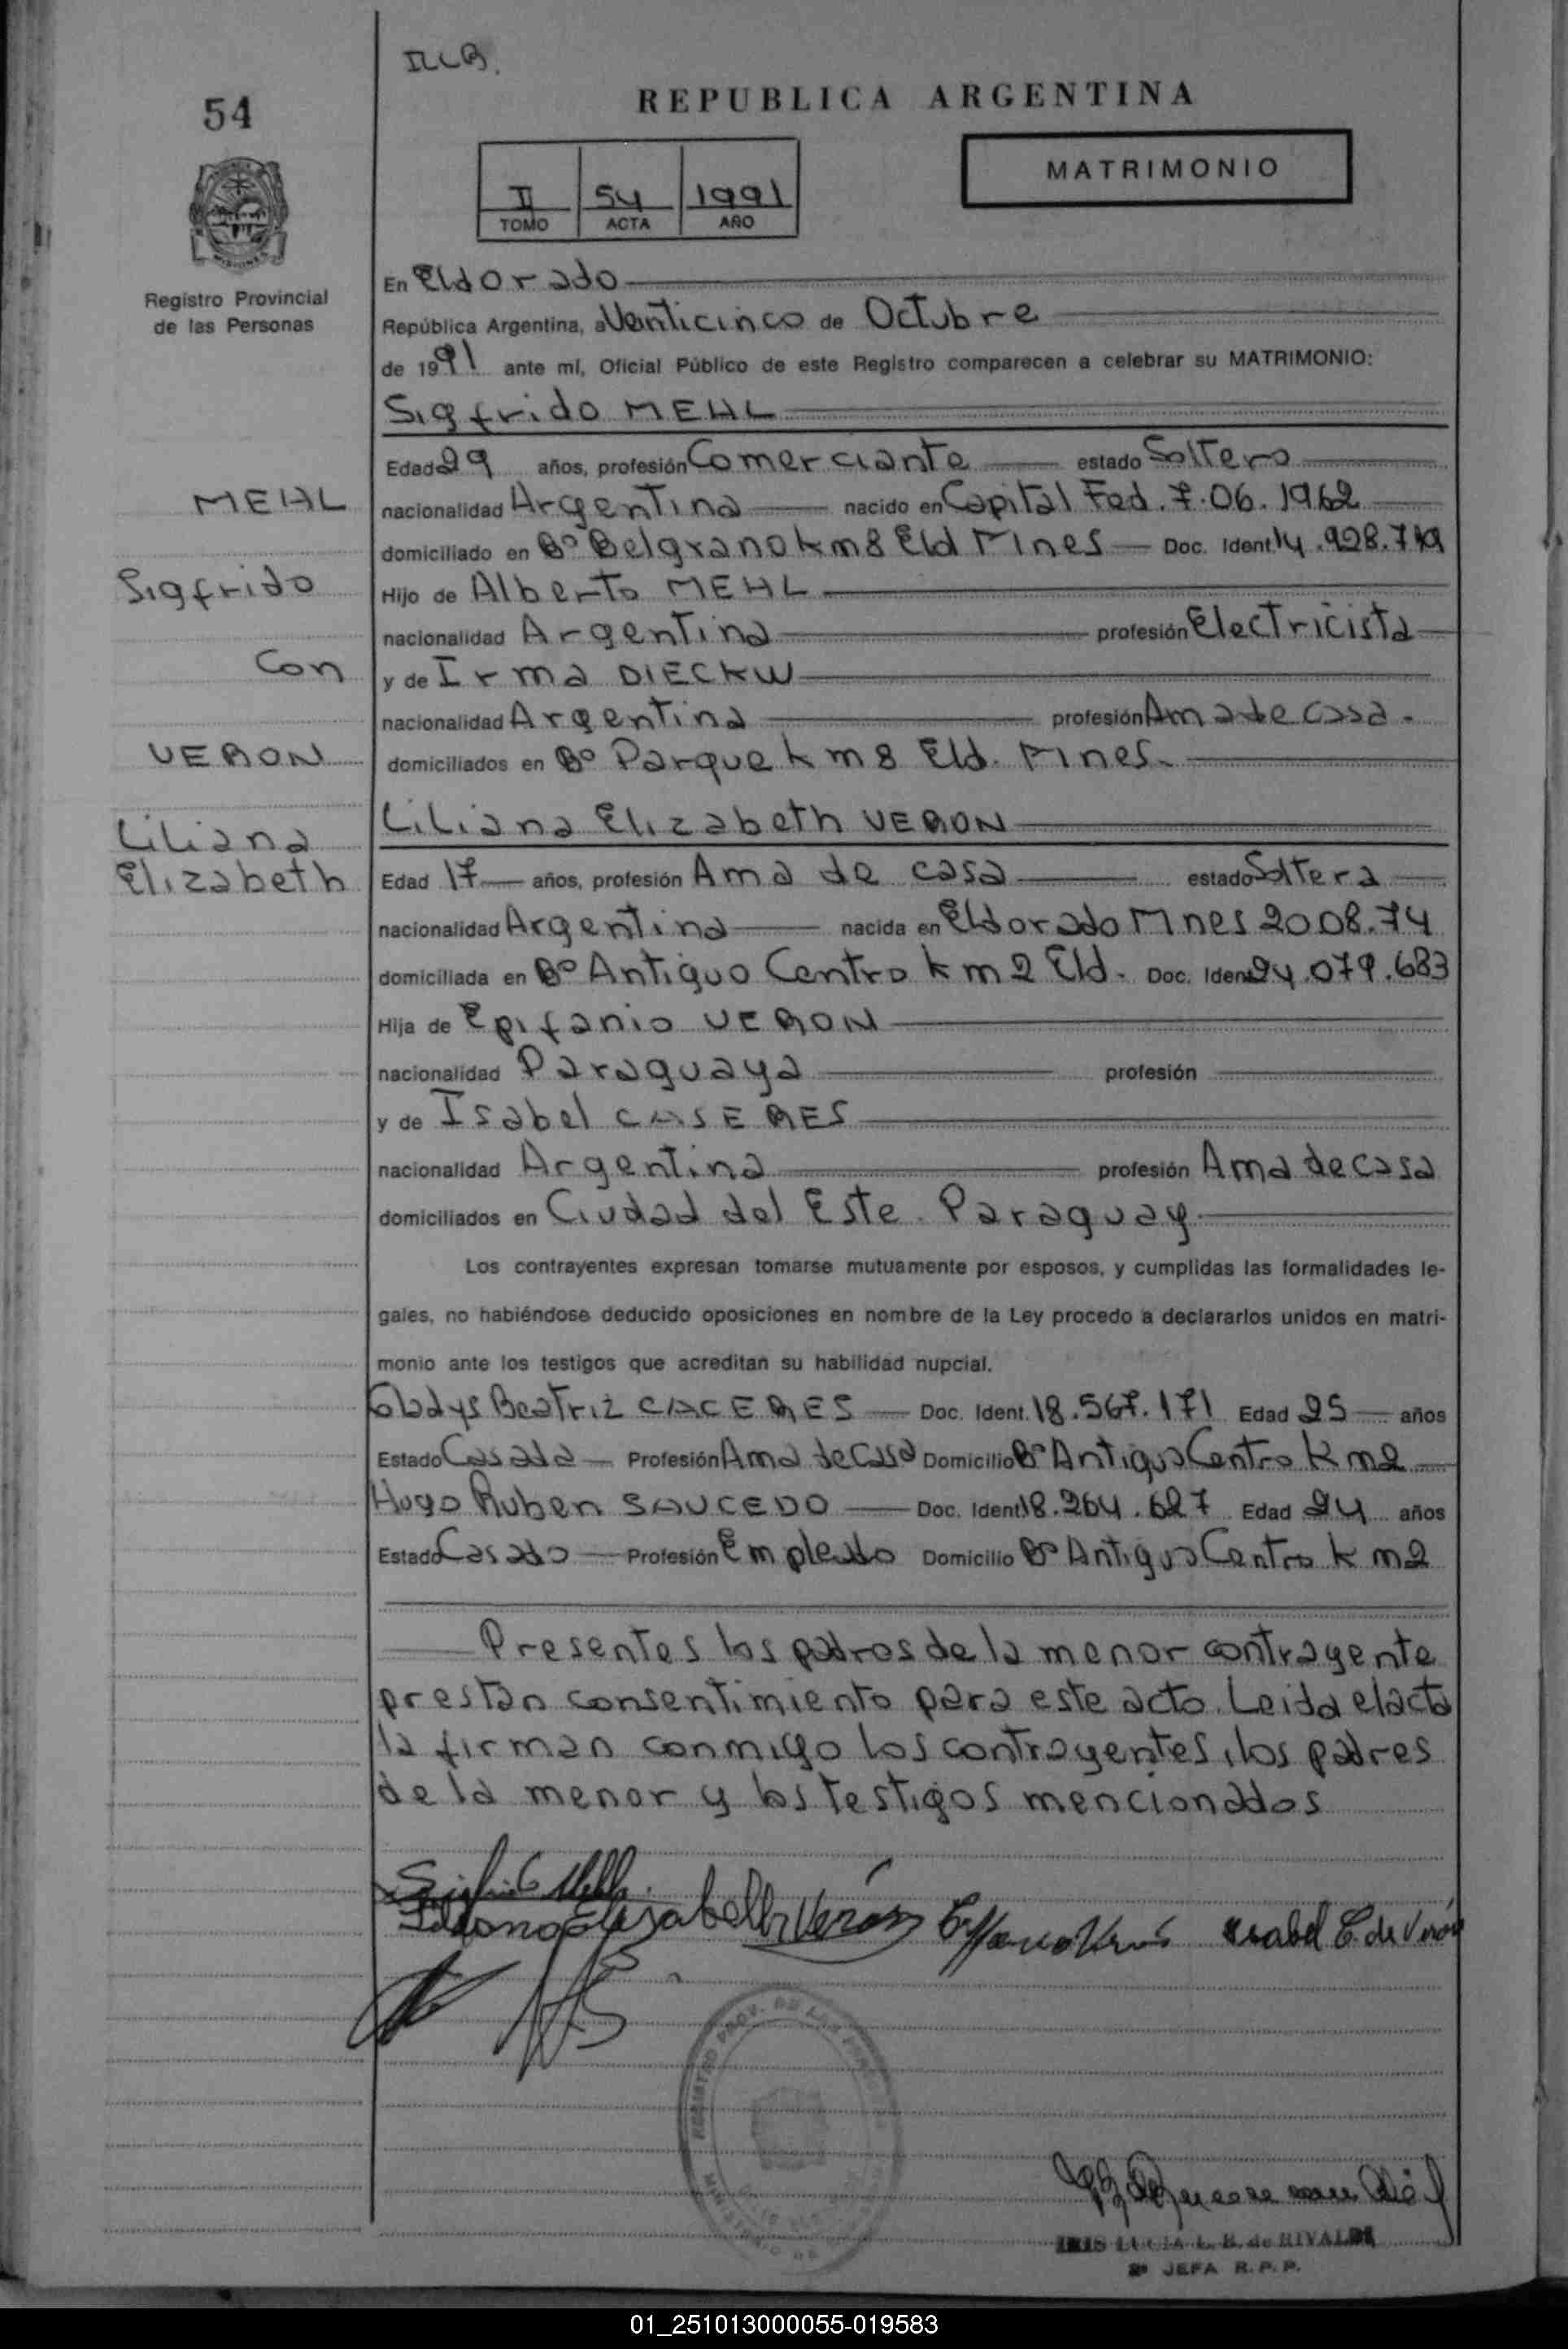 ILLB.
54
REPUBLICA ARGENTINA
MATRIMONIO
II 54 1991
TOMO ACTA AÑO
Registro Provincial
de las Personas
En Eldorado
República Argentina, a Venticinco de Octubre
de 1991 ante mí, Oficial Público de este Registro comparecen a celebrar su MATRIMONIO:
Sigfrido MEHL
Edad 29 años, profesión Comerciante estado Soltero
MEHL
nacionalidad Argentina nacido en Capital Fed. 7.06.1962
domiciliado en Bº Belgrano km 8 Eld Mnes Doc. Ident. 14.928.719
Sigfrido
Hijo de Alberto MEHL
nacionalidad Argentina profesión Electricista
Con
y de Irma DIECKW
nacionalidad Argentina profesión Ama de casa.
VERON
domiciliados en Bº Parque km 8 Eld. Mnes.
Liliana
Elizabeth
Liliana Elizabeth VERON
Edad 17 años, profesión Ama de casa estado Soltera
nacionalidad Argentina nacida en Eldorado Mnes 20.08.74
domiciliada en Bº Antiguo Centro km 2 Eld. Doc. Ident 24.079.683
Hija de Epifanio VERON
nacionalidad Paraguaya profesión
y de Isabel CASERES
nacionalidad Argentina profesión Ama de casa
domiciliados en Ciudad del Este. Paraguay
Los contrayentes expresan tomarse mutuamente por esposos, y cumplidas las formalidades le-
gales, no habiéndose deducido oposiciones en nombre de la Ley procedo a declararlos unidos en matri-
monio ante los testigos que acreditan su habilidad nupcial.
Gladys Beatriz CACERES Doc. Ident. 18.567.171 Edad 25 años
Estado Casada Profesión Ama de Casa Domicilio Bº Antiguo Centro Km 2
Hugo Ruben SAUCEDO Doc. Ident. 18.264.627 Edad 24 años
Estado Casado Profesión Empleado Domicilio Bº Antiguo Centro km 2
Presentes los padres de la menor contrayente
prestan consentimiento para este acto. Leida el acta
la firman conmigo los contrayentes, los padres
de la menor y los testigos mencionados
Sigfrido Mehl.
Liliana Elizabeth Verón Epifanio Verón Isabel C. de Verón
REGISTRO PROV. DE LAS
IRIS LUCIA L. B. de RIVALDI
2ª JEFA R.P.P.
01_251013000055-019583